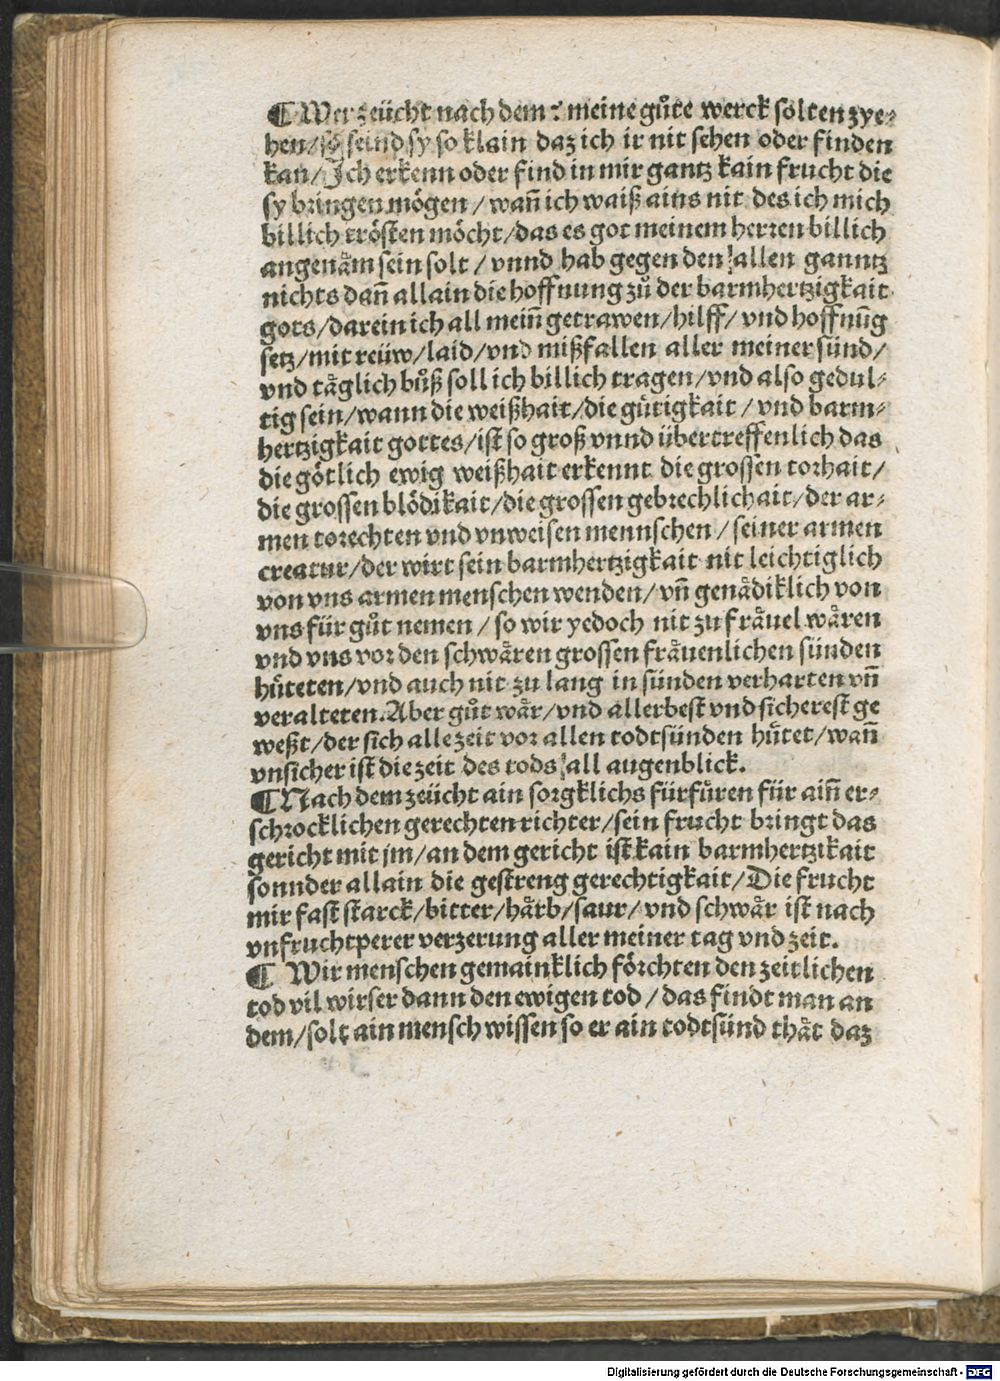 ¶ Wer zeücht nach dem? meine gůte werck solten zye⸗
hen/ so seind sy so klain daz ich ir nit sehen oder finden
kan/ Ich erkenn oder find in mir gantz kain frucht die
sy bringen mögen/ wañ ich waiß ains nit des ich mich
billich trösten möcht/ das es got meinem herren billich
angenäm sein solt/ vnnd hab gegen den allen ganntz
nichts dañ allain die hoffnung zů der barmhertzigkait
gots/ darein ich all meiñ getrawen/ hilff/ vnd hoffnũg
setz/ mit reüw/ laid/ vnd mißfallen aller meiner sünd/
vnd täglich bůß soll ich billich tragen/ vnd also gedul⸗
tig sein/ wann die weißhait/ die gütigkait/ vnd barm⸗
hertzigkait gottes/ ist so groß vnnd übertreffenlich das
die götlich ewig weißhait erkennt die grossen torhait/
die grossen blödikait/ die grossen gebrechlichait/ der ar⸗
men torechten vnd vnweisen mennschen/ seiner armen
creatur/ der wirt sein barmhertzigkait nit leichtiglich
von vns armen menschen wenden/ vñ genädiklich von
vns für gůt nemen/ so wir yedoch nit zu fräuel wären
vnd vns vor den schwären grossen fräuenlichen sünden
hüteten/ vnd auch nit zu lang in sünden verharten vñ
veralteten. Aber gůt wär/ vnd allerbest vnd sicherest ge
weßt/ der sich alle zeit vor allen todtsünden hütet/ wañ
vnsicher ist die zeit des tods all augenblick.
¶ Nach dem zeücht ain sorgklichs fürfüren für aiñ er⸗
schrocklichen gerechten richter/ sein frucht bringt das
gericht mit jm/ an dem gericht ist kain barmhertzikait
sonnder allain die gestreng gerechtigkait/ Die frucht
mir fast starck/ bitter/ härb/ saur/ vnd schwär ist nach
vnfruchtperer verzerung aller meiner tag vnd zeit.
¶ Wir menschen gemainklich förchten den zeitlichen
tod vil wirser dann den ewigen tod/ das findt man an
dem/ solt ain mensch wissen so er ain todtsünd thät daz
Digitalisierung gefördert durch die Deutsche Forschungsgemeinschaft - DFG